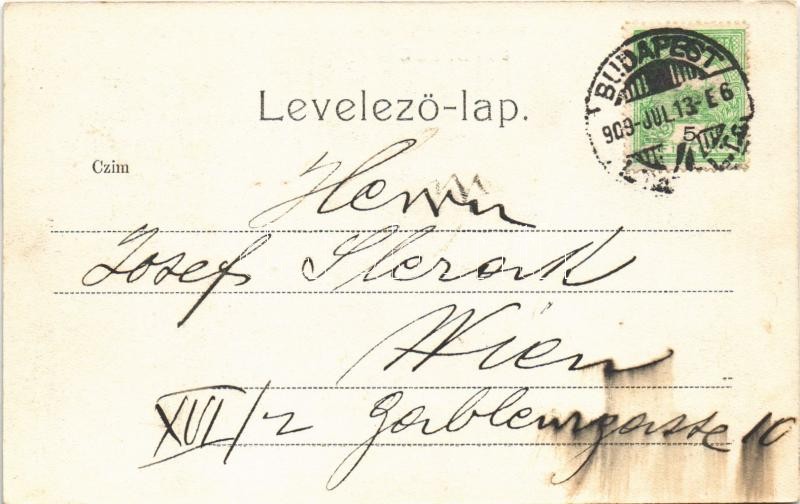 Levelezö-lap.
BUDAPEST
909-JUL.13-E6
5
Czim
Herrn
Josef Sterak
Wien
XVI/2 Gablenzgasse 10